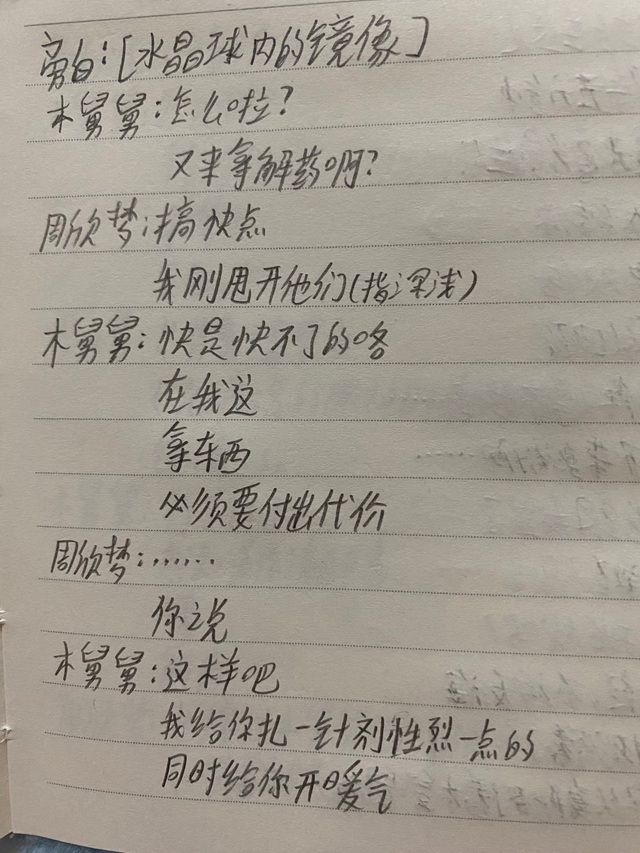 旁白：[水晶球内的镜像]
木舅舅：怎么啦？
又来拿解药啊？
周欣梦：搞快点
我刚甩开他们（指深浅）
木舅舅：快是快不了的咯
在我这
拿东西
必须要付出代价
周欣梦：……
你说
木舅舅：这样吧
我给你扎一针剂性烈一点的
同时给你开暖气